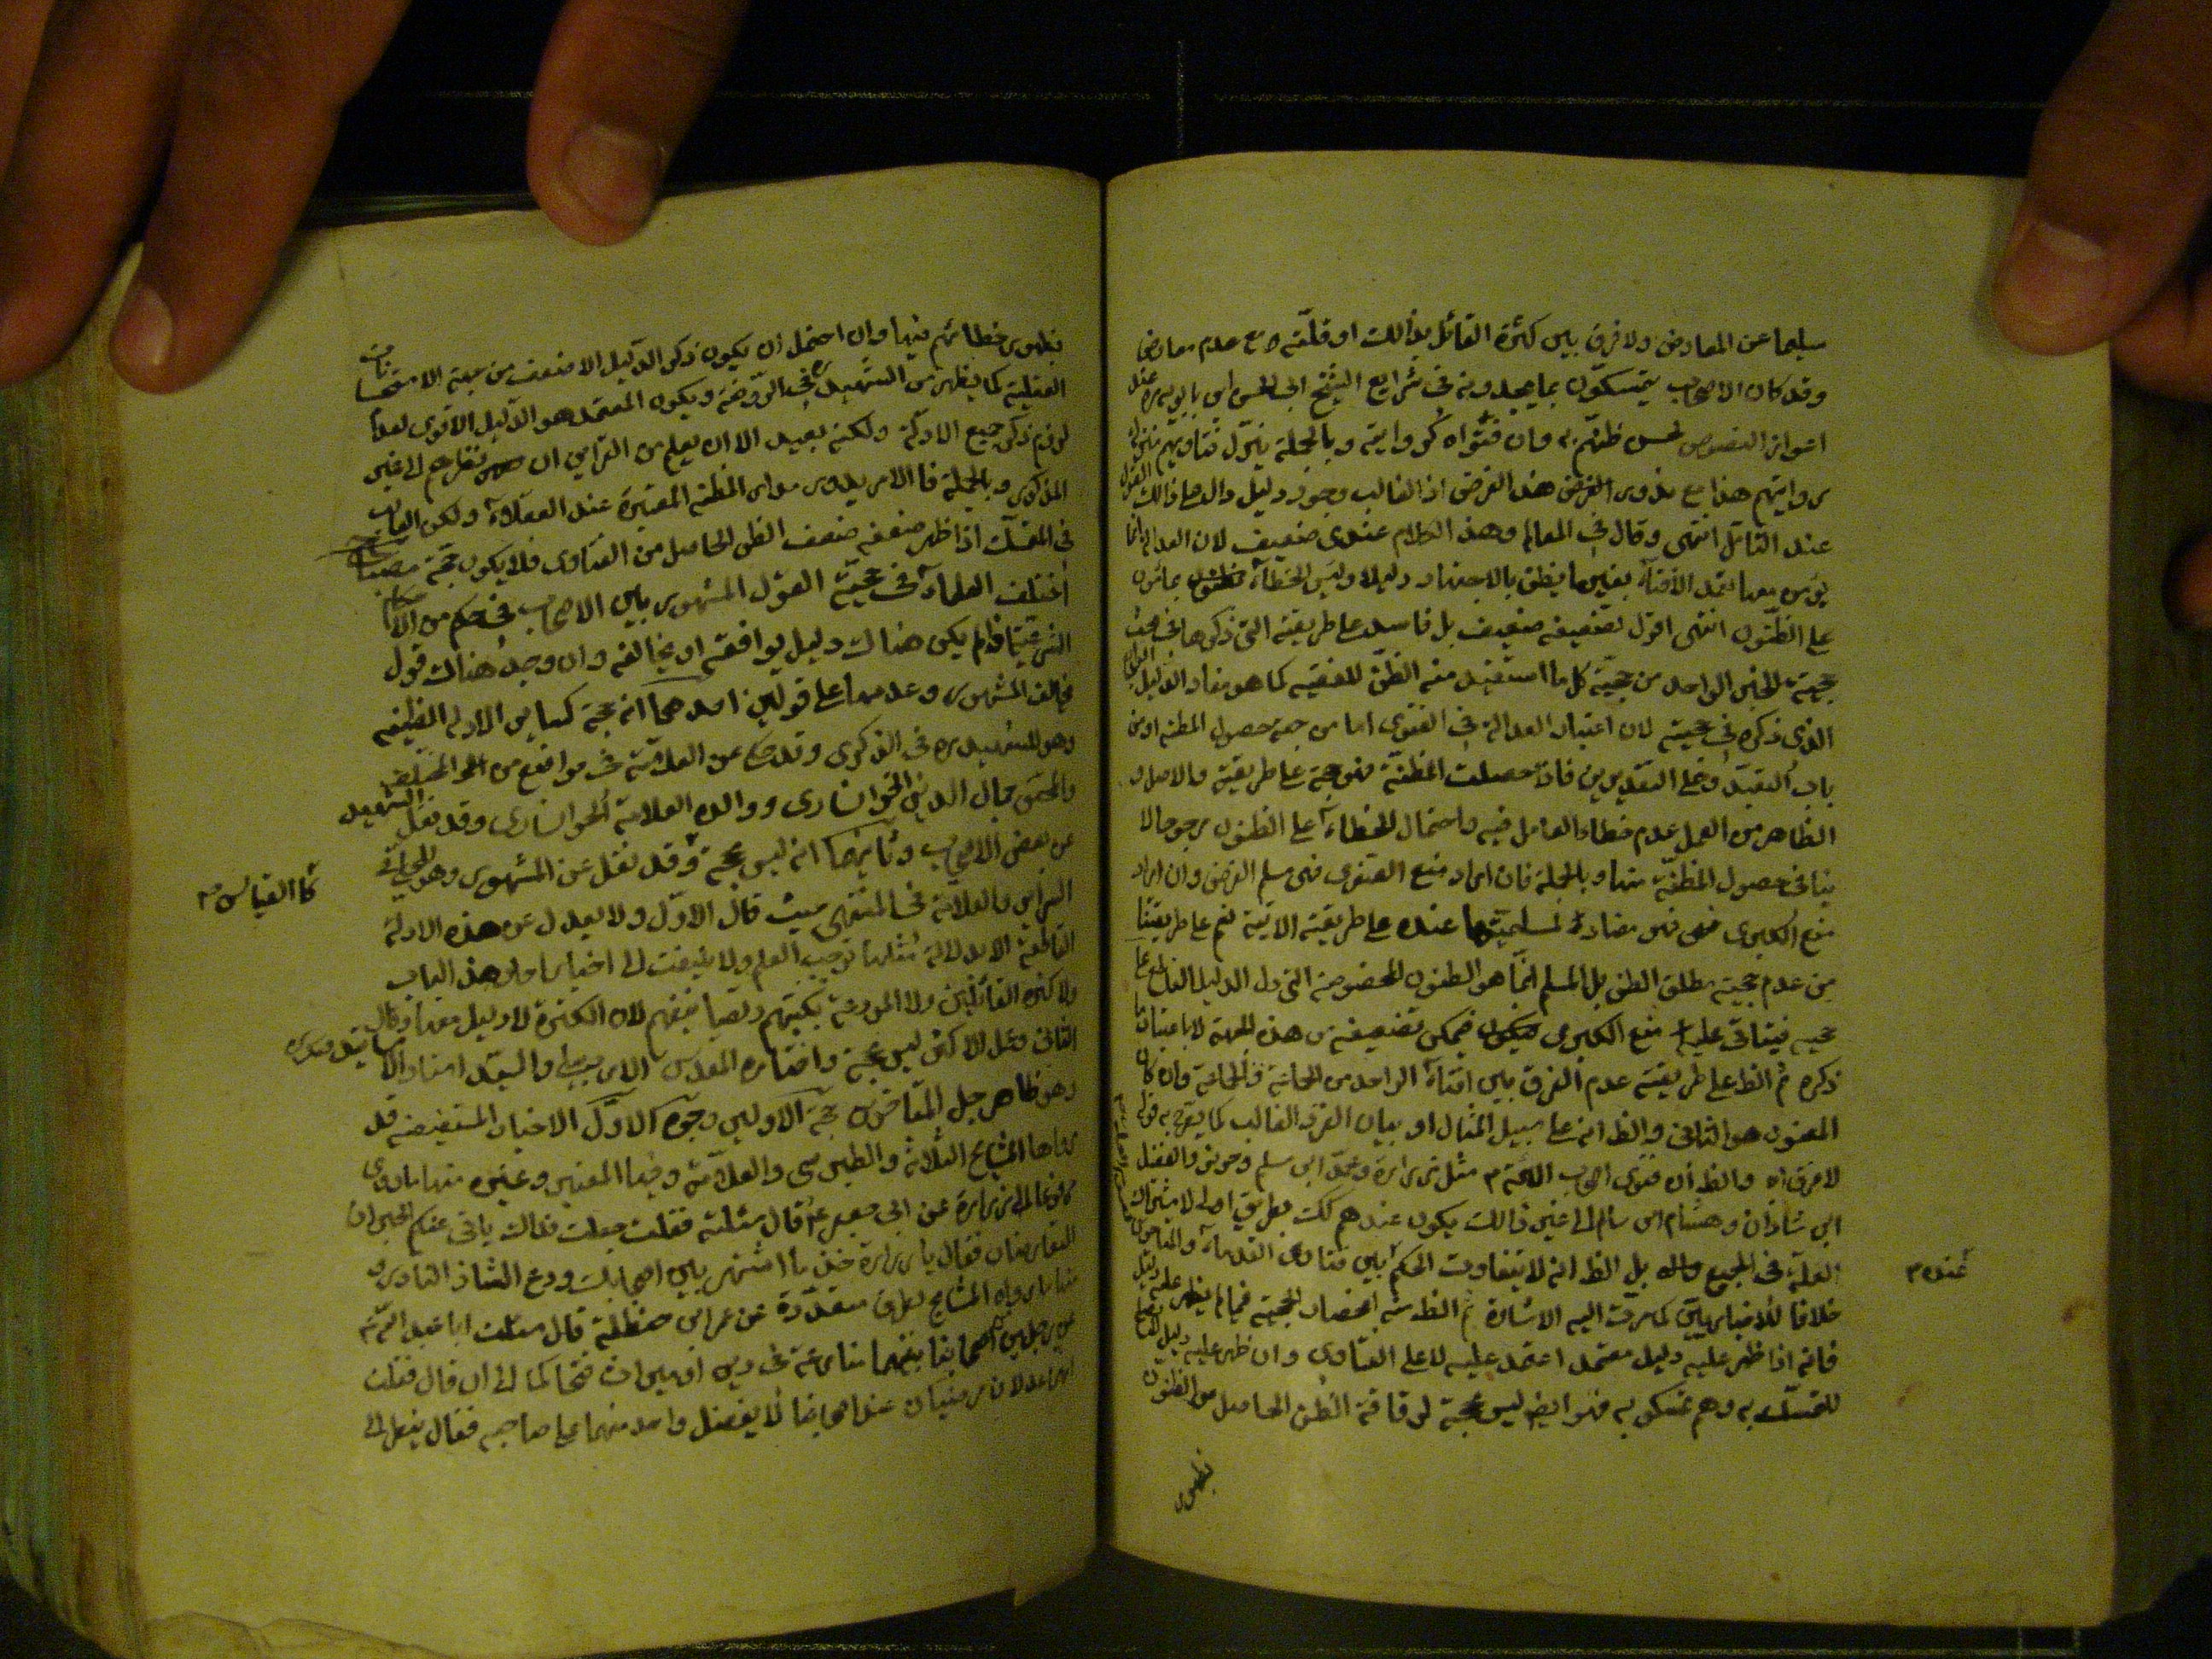 سليما عن المعارض ولا فرق بين كثرة القائل بذالك او قلّته مع عدم معارض
وقد كان الاصحاب يتمسكون بما يجدونه في شرايع الشيخ ابي الحسن ابن بابويه ره عند
اعواز النصوص لحسن ظنّهم به وان فتواه كروايته وبالجملة ينزّل فتاويهم منزلة
روايتهم هذا مع ندور الفرض هذا الفرض اذ الغالب وجود دليل دال على ذالك القول
عند التامّل انتهى وقال في المعالم وهذ الكلام عندى ضعيف لان العدالة انما
يؤمن معها تعمد الافتاء بغير ما يظن بالاجتهاد دليلا وليس الخطاء بمامون
على الظنون انتهى اقول تضعيفه ضعيف بل فاسد على طريقته التي ذكرها في بحث
حجية الخبر الواحد من حجية كل ما استفيد منه الظن للفقيه كما هو مفاد الدليل الرابع
الذى ذكره في حجيته لان اعتبار العدالة في الفتوى اما من جهة حصول المظنة او من
باب التعبّد وعلى التقديرين فاذا حصلت المظنّة فهو حجة على طريقته والاصل و
الظاهر من العمل عدم خطاء العامل فيه واحتمال الخطاء على الظنون مرجوحا لا
ينافى حصول المظنّة منها وبالجملة فان اراد منع الصغرى فهى مسلم الفرض وان اراد
منع الكبرى فهى مضادة لمسلميتها عنده على طريقته الاتية نعم على طريقتنا
من عدم حجية مطلق الظن بل المسلم انما هو الظنون المخصوصة التي دل الدليل القاطع على
حجيته فيتاتّى عليه منع الكبرى فيمكن تضعيفه من هذه الجهة لا باعتبار ما
ذكره ثم الظ على طريقته عدم الفرق بين افتاء الواحد من الجماعة والجماعة وان كان
المعنون هو الثانى والظ انه على سبيل المثال او بيان الفرد الغالب كما يصرّح به قوله
لا فرق اه والظ ان فتوى اصحاب الائمة م مثل زرارة ومحمّد ابن مسلم ويونس والفضل
ابن شاذان وهشام ابن سالم الى غير ذالك يكون عندهم كك بطريق اولى لاشتراك
العلة في الجميع بل الظ انه لا يتفاوت الحكم بين فتاوى القدماء والمتاخرين
عنده م
خلافا للاخباريين كما مرّت اليه الاشارة ثم الظ منه انحصار الحجية فيما لم يظهر عليه دليل
فانه اذا ظهر عليه دليل معتمد اعتمد عليه لا على الفتاوى وان ظهر عليه دليل
للتمسك به وهم تمسكو به فهو ايضا ليس بحجة لرقاقة الظن الحاصل من الظنون
بظهور
بظهور خطائهم فيها وان احتمل ان يكون ذكر الدليل الاضعف من جهة الاستحسانات
العقلية كما يظهر من الشهيد ره في الروضة ويكون المعتمد هو الدليل الاقوى لعدم
لزوم ذكر جميع الادلة ولكنه بعيد الا ان يعلم من القراين ان نظرهم الى غير
المذكور وبالجملة فالامر يدور مدار المظنة المعتبرة عند العقلاء ولكن الغالب
في المتمسك اذا ظهر ضعفه ضعف الظن الحاصل من الفتاوى فلا يكون حجة
اختلف العلماء في حجيّة القول المشهور بين الاصحاب في حكم من الاحكام
الشرعيّة ما لم يكن هناك دليل يوافقه او يخالفه وان وجد هناك قول
يخالف المشهور وعدمها على قولين احدهما انه حجة كساير الادلة الظنيه
وهو للشهيد ره في الذكرى وقد حكى عن العلامة في مواضع من المختلف
والمحقق جمال الدين الخوانسارى ووالده العلامة الخوانسارى وقد نقل الشهيد
عن بعض الاصحاب وثانيهما انه ليس بحجة وقد نقل عن المشهور وهو
كا القياس م
السرائر والعلامة في المنتهى حيث قال الاوّل ولا يعدل عن هذه الادلة
القاطعة الا بدلالة مثلها توجب العلم ولا يلتفت الى اخبار احاد هذ الباب
ولا كثرة القائلين ولا المودعة بكتبهم وتصانيفهم لان الكثرة لا دليل معها وقال
الثانى وعمل الاكثر ليس بحجة واختاره المقدس الاردبيلى والسيّد
وهو ظاهر جل المتاخرين حجة الاولين وجوه الاوّل الاخبار المستفيضة قد
رواها المشايخ الثلاثة والطبرسى والعلامة وغيره منها ما روى
مرفوعا الى زرارة عن ابي جعفر ع قال سئلته فقلت جعلت فداك ياتى عنكم الخبران
المتعارضان فقال يا زرارة خذ بما اشتهر بين اصحابك ودع الشاذ النادر و
منها ما رواه المشايخ بطرق متعدّدة عن عمر ابن حنظلة قال سئلت ابا عبد اللّه ع
عن رجلين من اصحابنا بينهما منازعة في دين او ميراث فتحاكما الى ان قال فقلت
انهما عدلان مرضيان عند اصحابنا لا يفضل واحد منهما على صاحبه فقال ينظر الى